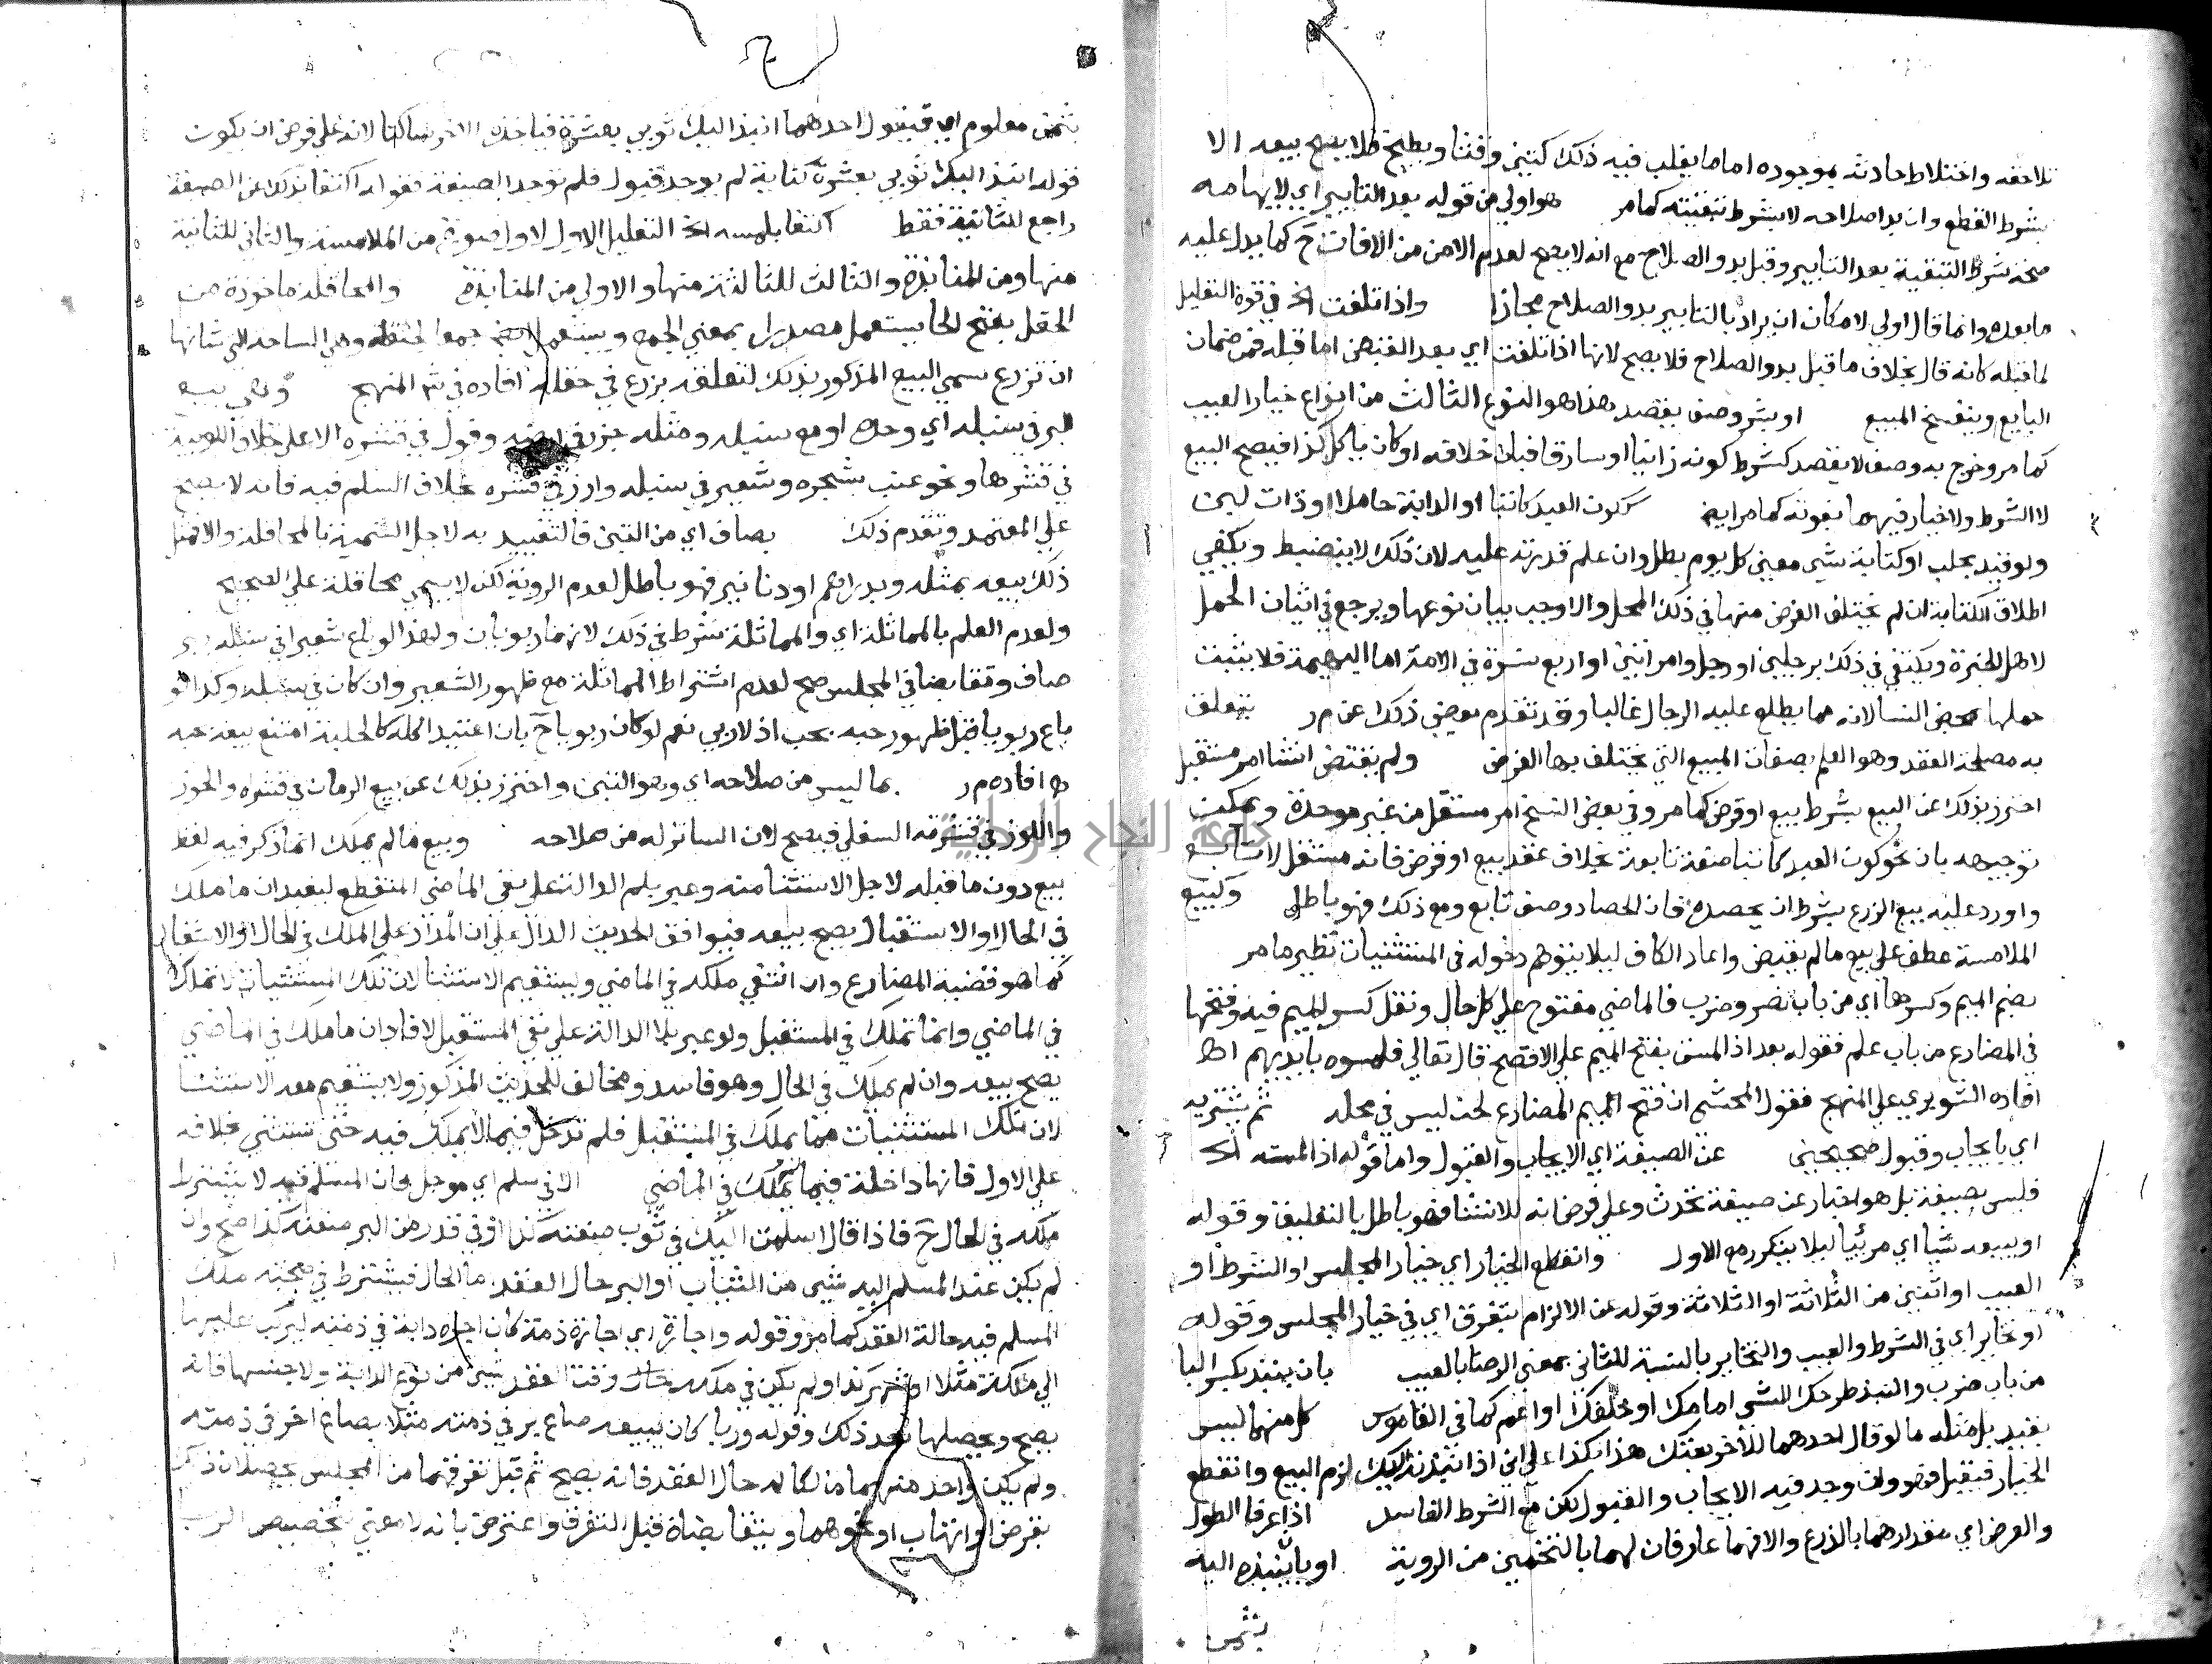 تلاحقه واختلاط حادثه بموجوده اما ما يغلب فيه ذلك كتين وقثا وبطيخ فلا يصح بيعه الا
بشرط القطع وان بدا صلاحه لا بشرط تبقيته كما مر هو اولي من قوله بعد التابير اي لايهامه
صحة شرط التبقية بعد التابير وقبل بدو الصلاح مع انه لا يصح لعدم الامن من الافات ح كما يدل عليه
ما بعده وانما قال اولي لامكان ان يراد بالتابير بدو الصلاح مجازا واذا تلفت الخ في قوة التعليل
لما قبله كانه قال بخلاف ما قبل بدو الصلاح فلا يصح لانها اذا تلفت اي بعد القبض اما قبله فمن ضمان
البايع وينفسخ المبيع او بشر وصف يقصد هذا هو النوع الثالث من انواع خيار العيب
كما مر وخرج به وصف لا يقصد كشرط كونه زانيا او سارقا فبان خلافه او كان ياكل كذا فيصح البيع
لا الشرط ولا خيار فيهما بفوته كما مر ايضا ككون العبد كاتبا او الدابة حاملا او ذات لبن
ولو قيد بحلب او كتابة شي معين كل يوم بطل وان علم قدرته عليه لان ذلك لا ينضبط ويكفي
اطلاق الكتابة ان لم يختلف الغرض منها في ذلك المحل والا وجب بيان نوعها ويرجع في اثبات الحمل
لاهل الخبرة ويكتفي في ذلك برجلين او رجل وامراتين او اربع نسوة في الامة اما البهيمة فلا يثبت
حملها بمحض النسا لانه مما يطلع عليه الرجال غالبا وقد تقدم بعض ذلك عن م ر يتعلق
به مصلحة العقد وهو العلم بصفات المبيع التي يختلف بها الغرض ولم يقتض انشا امر مستقبل
احترز بذلك عن البيع بشرط بيع او قرض كما مر وفي بعض النسخ امر مستقل من غير موحدة ويمكن
توجيهه بان نحو كون العبد كاتبا صفة تابعة بخلاف عقد بيع او قرض فانه مستقل لا تابع
واورد عليه بيع الزرع بشرط ان يحصده فان الحصاد وصف تابع ومع ذلك فهو باطل وكبيع
الملامسة عطف علي بيع ما لم يقبض واعاد الكاف ليلا يتوهم دخوله في المستثنيات نظير ما مر
بضم الميم وكسرها اي من باب نصر وضرب فالماضي مفتوح علي كل حال ونقل كسر الميم فيه وفتحها
في المضارع من باب علم فقوله بعد اذا لمس بفتح الميم علي الافصح قال تعالي فلمسوه بايديهم اه
افاده الشوبري علي المنهج فقول المحشي ان فتح الميم المضارع لحن ليس في محله ثم يشتريه
اي بايجاب وقبول صحيحين عن الصيغة اي الايجاب والقبول واما قوله اذا لمسته الخ
فليس بصيغة بل هو اخبار عن صيغة تحدث وعلي فرض انه للانشا فهو باطل بالتعليق وقوله
او يبيعه شيا اي مرئيا ليلا يتكرر مع الاول وانقطع الخيار اي خيار المجلس او الشرط او
العيب او اثنين من الثلاثة او الثلاثة وقوله عن الالزام بتفرق اي في خيار المجلس وقوله
او تخاير اي في الشرط والعيب والتخاير بالنسبة للثاني بمعني الرضا بالعيب بان ينبذ بكسر البا
من باب ضرب والنبذ طرحك للشي امامك او خلفك او اعم كما في القاموس كل منهما ليس
بقيد بل مثله ما لو قال احدهما للاخر بعتك هذا بكذا علي اني اذا نبذته اليك لزم البيع وانقطع
الخيار فيقبل فهو وان وجد فيه الايجاب والقبول لكن مع الشرط الفاسد اذا عرفا الطول
والعرض اي مقدارهما بالذرع والا فهما عارفان لهما بالتخمين من الروية او بان ينبذه اليه
بثمن
بثمن معلوم اي فيقول احدهما انبذ اليك ثوبي بعشرة فياخذه الاخر ساكتا لانه علي فرض ان يكون
قوله انبذ اليك ثوبي بعشرة كناية لم يوجد قبول فلم توجد الصيغة فقوله اكتفا بذلك عن الصيغة
راجع للثانية فقط اكتفا بلمسه الخ التعليل الاول لاول صورة من الملامسة والثاني للثانية
منها ومن المنابذة والثالث للثالثة منها والاولي من المنابذة والمحاقلة ماخوذة من
الحقل بفتح الحا يستعمل مصدرا بمعني الجمع ويستعمل ايضا جمعا لحقلة وهي الساحة التي شانها
ان تزرع سمي البيع المذكور بذلك لتعلقه بزرع في حقله افاده في شم المنهج وهي بيع
البر في سنبله اي وحده او مع سنبله ومثله جزر في ارضه وفول في قشره الاعلي خلاف اللوبية
في قشرها ونحو عنب بشجره وشعير في سنبله وارز في قشره بخلاف السلم فيه فانه لا يصح
علي المعتمد وتقدم ذلك بصاف اي من التبن فالتقييد به لاجل التسمية بالمحاقلة والا فمثل
ذلك بيعه بمثله وبدراهم او دنانير فهو باطل لعدم الروية لكن لا يسمي محاقلة علي الصحيح
ولعدم العلم بالمماثلة اي والمماثلة شرط في ذلك لانهما ربويان ولهذا لو باع شعيرا في سنبله ببر
صاف وتقابضا في المجلس صح لعدم اشتراط المماثلة مع ظهور الشعير وان كان في سنبله وكذا لو
باع ربويا قبل ظهور حبه بحب اذ لا ربي نعم لو كان ربويا ح بان اعتيد اكله كالحلبة امتنع بيعه بحبه
ط افاده م ر بما ليس من صلاحه اي وهو التبن واحترز بذلك عن بيع الرمان في قشره والجوز
واللوز في قشرته السفلي فيصح لان الساتر له من صلاحه وبيع ما لم يملك انما ذكر فيه لفظ
بيع دون ما قبله لاجل الاستثنا منه وعبر بلم الدالة علي نفي الماضي المنقطع ليفيد ان ما ملك
في الحال او الاستقبال يصح بيعه فيوافق الحديث الدال علي ان المدار علي الملك في الحال او الاستقبال
كما هو قضية المضارع وان انتفي ملكه في الماضي ويستقيم الاستثنا لان تلك المستثنيات لا تملك
في الماضي وانما تملك في المستقبل ولو عبر بلا الدالة علي نفي المستقبل لافاد ان ما ملك في الماضي
يصح بيعه وان لم يملك في الحال وهو فاسد ومخالف للحديث المذكور ولا يستقيم معه الاستثنا
لان تلك المستثنيات مما يملك في المستقبل فلم تدخل فيما لا يملك فيه حتي تستثني بخلافه
علي الاول فانها داخلة فيما لم يملك في الماضي الا في سلم اي موجل فان المسلم فيه لا يشترط
ملكه في الحال ح فاذا قال اسلمت اليك في ثوب صفته كذا او في قدر من البر صفته كذا صح وان
لم يكن عند المسلم اليه شي من الثياب او البر حال العقد اما الحال فيشترط في صحته ملك
المسلم فيه حالة العقد كما مر وقوله واجارة اي اجارة ذمة كان اجره دابة في ذمته ليركب عليها
الي مكة مثلا او شهر كذا ولم يكن في ملكه حال وقت العقد شي من نوع الدابة ولا جنسها فانه
يصح ويحصلها بعد ذلك وقوله وربا كان يبيعه صاع بر في ذمته مثلا بصاع اخر في ذمته
ولم يكن واحد منهما مالكا له حال العقد فانه يصح ثم قبل تفرقهما من المجلس يحصلان ذلك
بقرض او اتهاب او نحوهما ويتقابضاه قبل التفرق واعترض بانه لا معني لتخصيص الربا